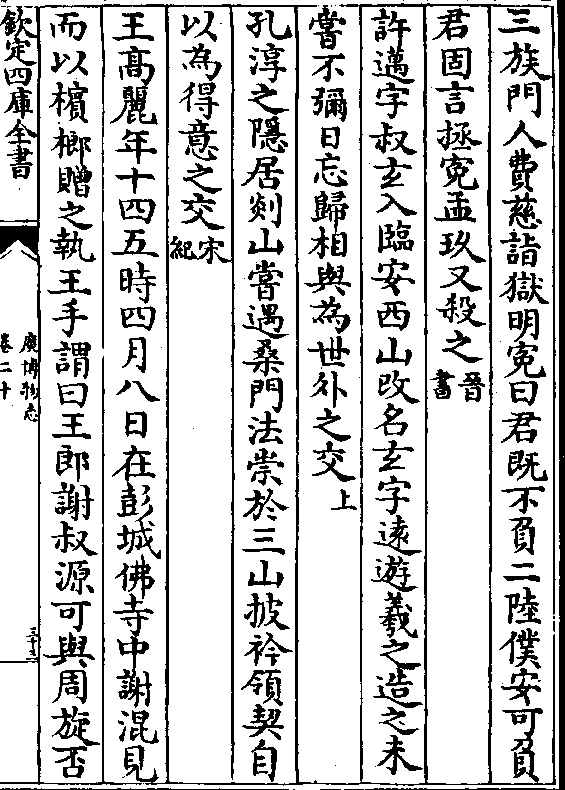 三族門人費慈詣獄明寃曰君既不負二陸僕安可負
君固言拯寃孟玖又殺之晉書
許邁字叔𤣥入臨安西山改名𤣥字逺遊羲之造之未
嘗不彌日忘歸相與為世外之交上
孔淳之隱居剡山嘗遇桑門法崇於三山披衿領契自
以為得意之交宋紀
王髙麗年十四五時四月八日在彭城佛寺中謝混見
而以檳榔贈之執王手謂曰王郎謝叔源可與周旋否
欽定四庫全書
廣博物志
卷二十
三十三